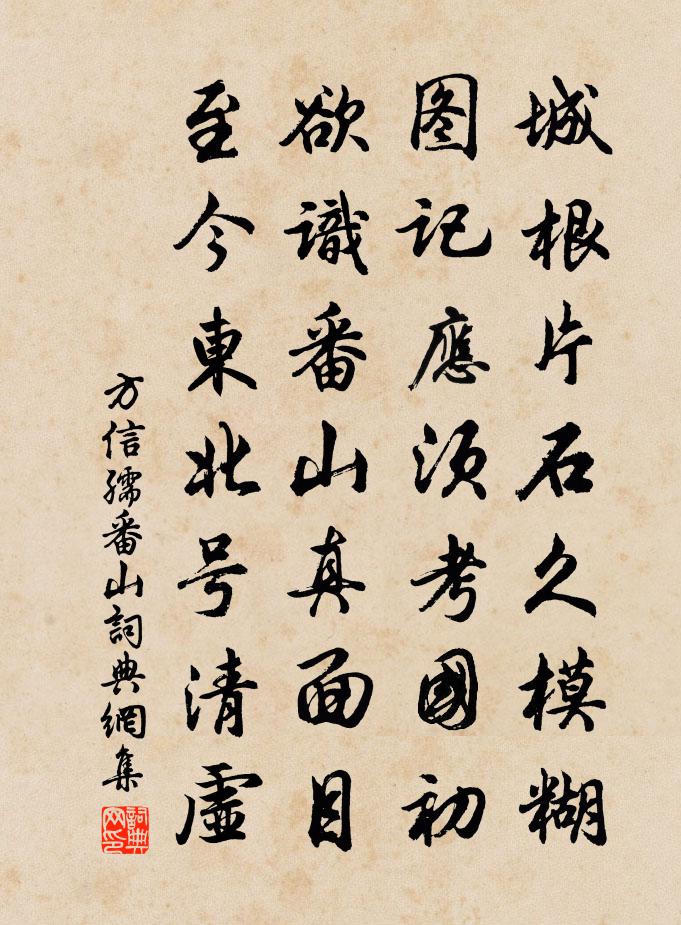 城根片石久模糊
图记應须考國初
欲識番山真面目
至今東北号清虛
方信孺番山詞典網集
詞典网印